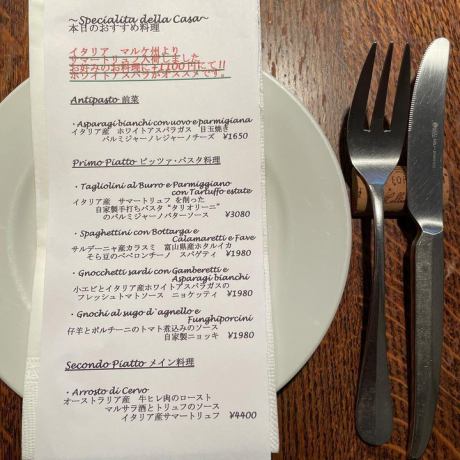 ~Specialita della Casa~
本日のおすすめ料理
イタリア マルケ州より
サマートリュフ入荷しました
お好みのお料理に+1100円にて!!
ホワイトアスパラがオススメです。
Antipasto 前菜
・Asparagi bianchi con uovo e parmigiana
イタリア産 ホワイトアスパラガス 目玉焼き
パルミジャーノレジャーノチーズ ¥1650
Primo Piatto ピッツァ・パスタ料理
・Tagliolini al Burro e Parmiggiano
con Tartuffo estate
イタリア産 サマートリュフ を削った
自家製手打ちパスタ “タリオリーニ”
のパルミジャーノバターソース ¥3080
・Spaghettini con Bottarga e
Calamaretti e Fave
サルデーニャ産カラスミ 富山県産ホタルイカ
そら豆のペペロンチーノ スパゲティ ¥1980
・Gnocchetti sardi con Gamberetti e
Asparagi bianchi
小エビとイタリア産ホワイトアスパラガスの
フレッシュトマトソース ニョケッティ ¥1980
・Gnochi al sugo d`agnello e
Funghiporcini
仔羊とポルチーニのトマト煮込みのソース
自家製ニョッキ ¥1980
Secondo Piatto メイン料理
・Arrosto di Cervo
オーストラリア産 牛ヒレ肉のロースト
マルサラ酒とトリュフのソース
イタリア産サマートリュフ ¥4400